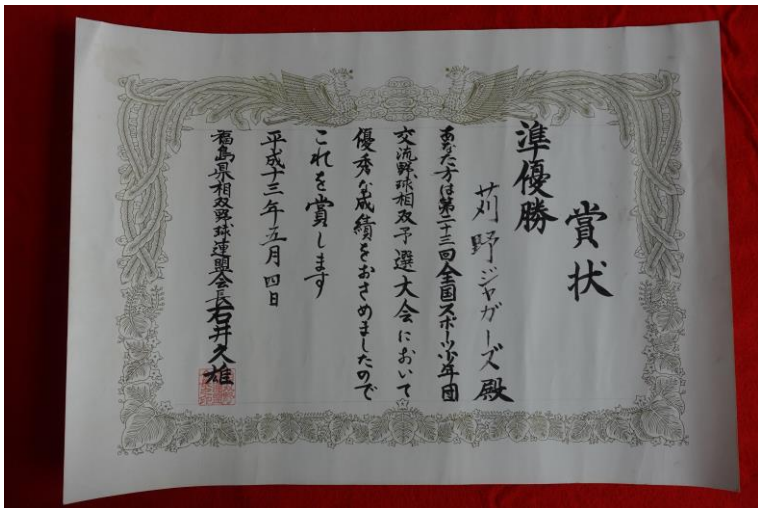 賞状
準優勝
苅野ジャガーズ殿
あなた方は第二十三回全国スポーツ少年団
交流野球相双予選大会において
優秀な成績をおさめましたので
これを賞します
平成十三年五月四日
福島県相双野球連盟会長石井久雄